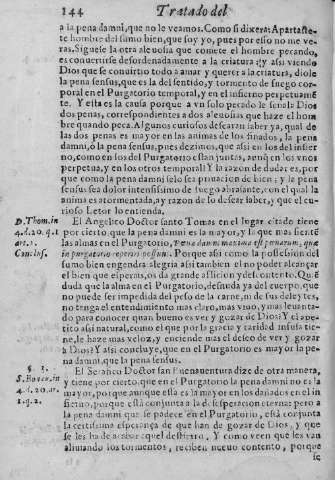 144 Tratado del
a la pena damni, que no le veamos. Como si dixera: Apartaste-
te hombre del sumo bien, que soy yo, pues por esso no me ve-
ras. Siguese la otra aleuosia que comete el hombre pecando,
es conuertirse desordenadamente a la criatura: y assi viendo
Dios que se conuirtio todo a amar y querer a la criatura, diole
la pena sensus, que es la del sentido, y tormento de fuego cor-
poral en el Purgatorio temporal, y en el infierno perpetuamē
te. Y esta es la causa porque a vn solo pecado le señala Dios
dos penas, correspondientes a dos aleuosias que haze el hom
bre quando peca. Algunos curiosos desearan saber ya, qual de
las dos penas es mayor en las animas de los finados, la pena
damni, ò la pena sensus, pues dezimos, que assi en los del infier
no, como en los del Purgatorio estan juntas, aunq̃ en los vnos
perpetua, y en los otros temporal? Y la razon de dudar es, por
que como la pena damni solo sea priuacion de bien, y la pena
sensus sea dolor intensissimo de fuego abrasante, con el qual la
anima es atormentada, ay razon de lo desear saber, y que el cu-
rioso Letor lo entienda.
D. Thom. in El Angelico Doctor santo Tomas en el lugar citado tiene
4. d. 20. q. 1 por cierto que la pena damni es la mayor, y la que mas sienté
art. 2. las almas en el Purgatorio, Pena damni maxima est pœnarum, quæ
Conclus. in purgatorio reperiri possunt. Porque assi como la possession del
sumo bien engendra alegria, assi tambien el no poder alcançar
el bien que espera, os da grande afliccion y descontento. Quiē
duda que la alma en el Purgatorio, desnuda ya del cuerpo, que
no puede ser impedida del peso de la carne, ni de sus deleytes,
no tenga el entendimiento mas claro, mas viuo, y mas leuanta-
do para conocer quan bueno es ver y gozar de Dios? Y el ape-
tito assi natural, como el que por la gracia y caridad infusa tie-
ne, le haze mas veloz, y enciende mas el deseo de ver y gozar
a Dios? Y assi concluye, que en el Purgatorio es mayor la pe-
na damni, que la pena sensus.
§. 3. El Serafico Doctor san Buenauentura dize de otra manera,
S. Bonau. in y tiene por cierto, que en el Purgatorio la pena damni no es la
4. d. 20. ar. mayor, porque aunque esta es la mayor en los dañados en el In
1. q. 2. fierno, porque està conjunta a la desesperacion eterna: pero a
la pena damni que se padece en el Purgatorio, està conjunta
la certissima esperança de que han de gozar de Dios, y que
se les ha de acabar aquel destierro. Y como veen que les van
aliuiando los tormentos, reciben nueuo contento, porque
se